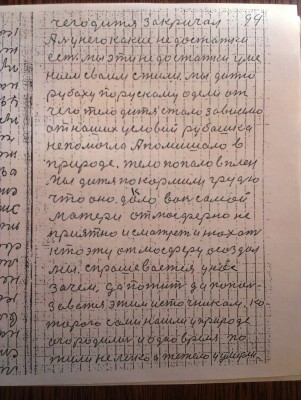 чего дитя закричал 99
А я у него какие недостатки
есть. мы эти недостатки уме
нием своим сшили. мы дитю
рубаху по рускому одели от
чего тело дитя стало зависимо
от наших условий рубашка
непомогла А помешало в
природе. тело попало в плен
мы дитя покормили грудю
что оно дало вон самой
матери отмосферно не
приятно и смотрет и нохат
кто эту отмосферу создал
мы. спрашевается унас
зачем, да потит да ползи
завется этим источникам, ко
торого сами нашли у природе
огородили и одно время по
жили не легко а тежело и умерли